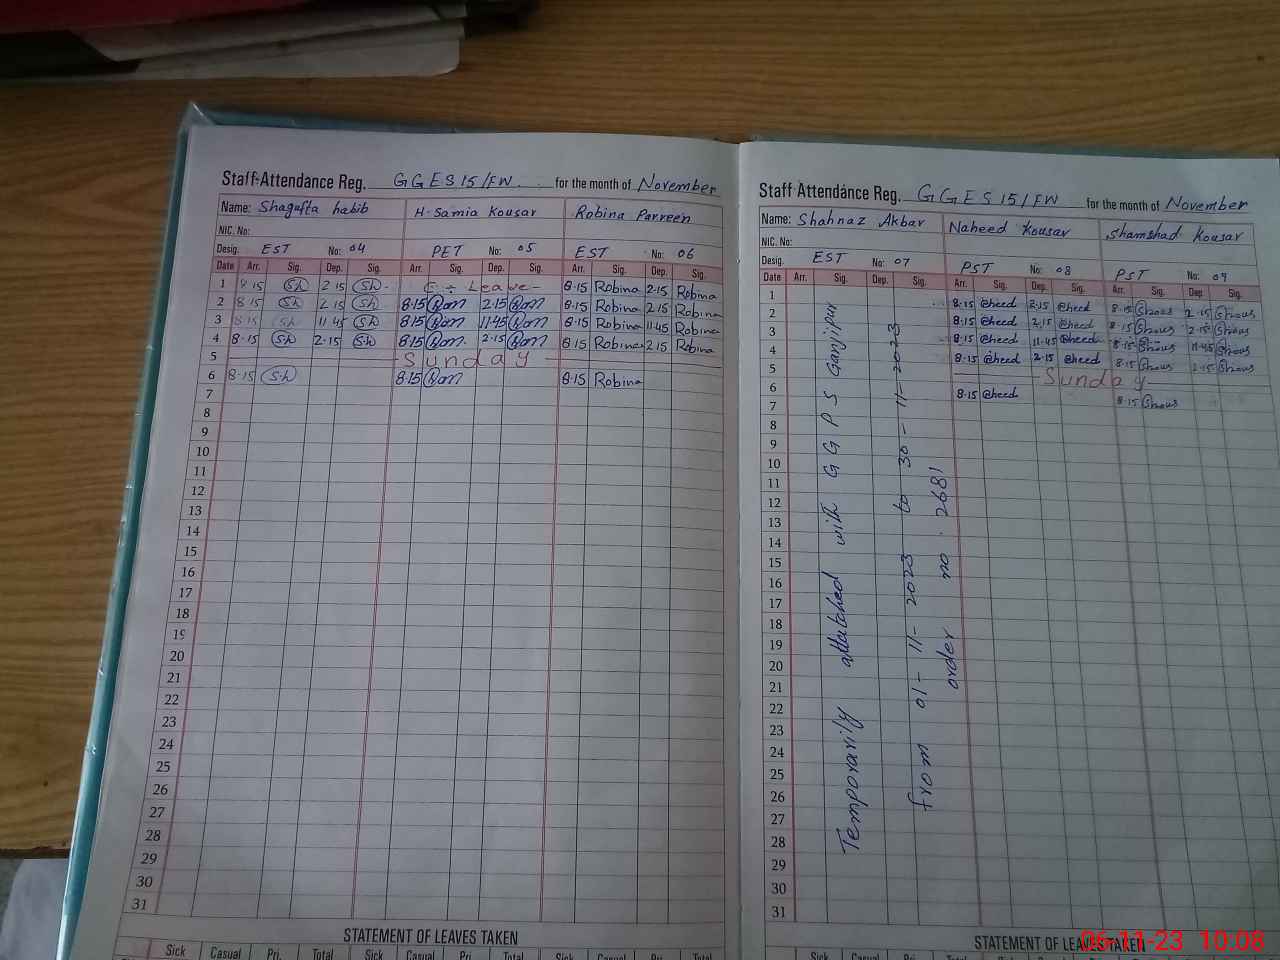 Staff Attendance Reg. GGES 15/FW for the month of November
Name: Shagufta habib H. Samia Kousar Robina Parveen
NIC. No:
Desig. EST No: 04 PET No: 05 EST No: 06
Date Arr. Sig. Dep. Sig. Arr. Sig. Dep. Sig. Arr. Sig. Dep. Sig.
1 8·15 Sh 2 15 Sh Leave 8·15 Robina 2·15 Robina
2 8·15 Sh 2 15 Sh 8·15 2·15 8·15 Robina 2·15 Robina
3 8·15 Sh 11 45 Sh 8·15 11·45 8·15 Robina 11·45 Robina
4 8·15 Sh 2·15 Sh 8·15 2·15 8·15 Robina 2·15 Robina
5 Sunday
6 8·15 Sh 8·15 8·15 Robina
7
8
9
10
11
12
13
14
15
16
17
18
19
20
21
22
23
24
25
26
27
28
29
30
31
STATEMENT OF LEAVES TAKEN
Sick Casual Pri. Total Sick Casual Pri. Total Sick Casual Pri. Total
Staff Attendance Reg. GGES 15/FW for the month of November
Name: Shahnaz Akbar Naheed Kousar Shamshad Kousar
NIC. No:
Desig. EST No: 07 PST No: 08 PST No: 09
Date Arr. Sig. Dep. Sig. Arr. Sig. Dep. Sig. Arr. Sig. Dep. Sig.
1 8·15 @heed 2·15 @heed 8·15 2·15
2 8·15 @heed 2·15 @heed 8·15 2·15
3 8·15 @heed 11·45 @heed 8·15 11·45
4 8·15 @heed 2·15 @heed 8·15 2·15
5 Sunday
6 8·15 @heed 8·15
7
8
9
10
11
12
13
14
15
16
17
18
19
20
21
22
23
24
25
26
27
28
29
30
31
Temporarily attatched with GGPS Ganjipur
from 01-11-2023 to 30-11-2023
order no. 2681
STATEMENT OF LEAVES TAKEN
Sick Casual Pri. Total Sick
06-11-23 10.08